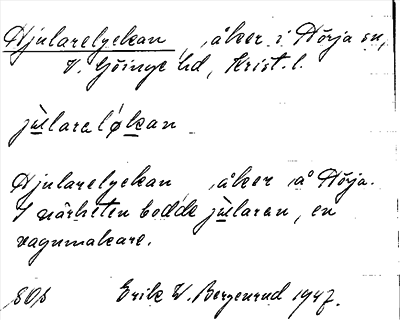 Hjularelyckan, åker i Hörja sn,
V. Göinge hd, Krist. l.
julareløkan
Hjularelyckan åker å Hörja.
I närheten bodde jularen, en
vagnmakare.
Erik W. Bergenrud 1947.